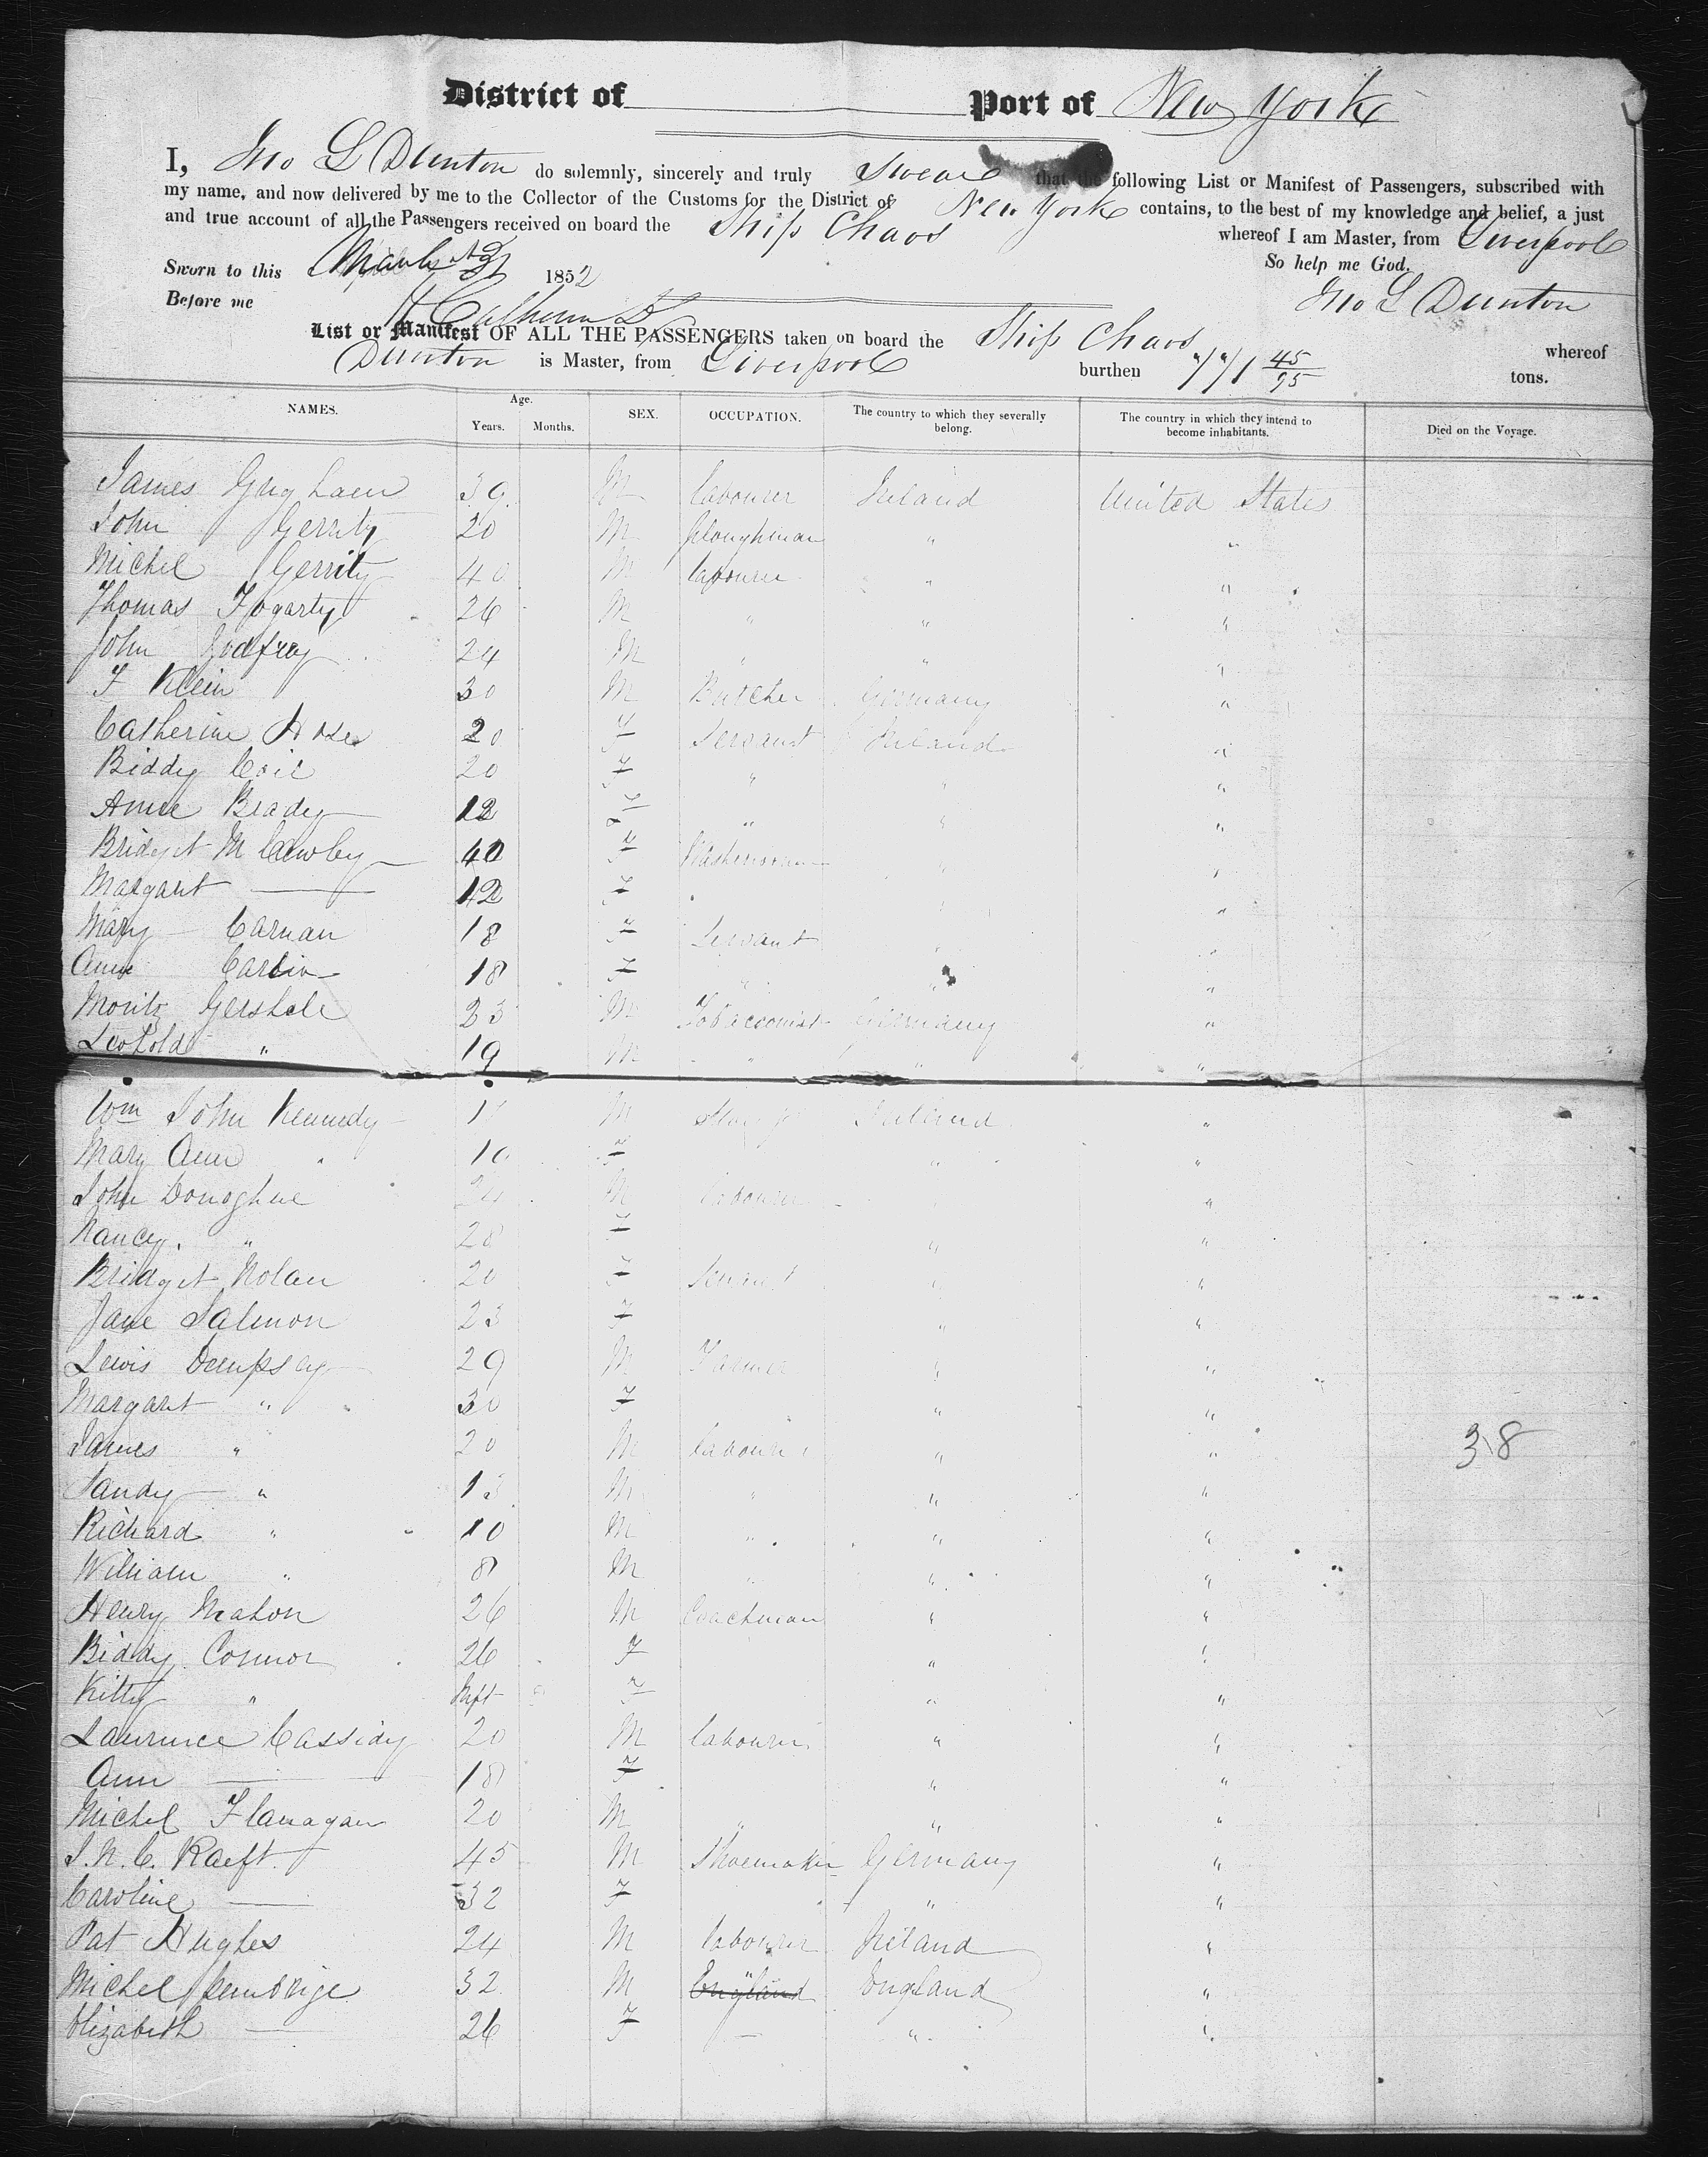 District of Port of New York
I, Jno L Dunton do solemnly, sincerely and truly swear that the following List or Manifest of Passengers, subscribed with
my name, and now delivered by me to the Collector of the Customs for the District of New York contains, to the best of my knowledge and belief, a just
and true account of all the Passengers received on board the Ship Chaos whereof I am Master, from Liverpool
Sworn to this 1852 So help me God.
Before me Jno L Dunton
List or Manifest OF ALL THE PASSENGERS taken on board the Ship Chaos whereof
Dunton is Master, from Liverpool burthen 771 45/95 tons.
NAMES. Age. Years. Months. SEX. OCCUPATION. The country to which they severally belong. The country in which they intend to become inhabitants. Died on the Voyage.
James 39 M labourer Ireland United States
John Gerrity 20 M ploughman " "
Michel Gerrity 40 M labourer " "
Thomas Fogarty 26 M " " "
John Godfrey 24 M " " "
F Klein 30 M Butcher Germany "
Catherine 20 F Servant Ireland "
Biddy 20 F " " "
Anne Brady 12 F " " "
Bridget 40 F Washerwoman " "
Margaret — 12 F "
Mary Carnan 18 F Servant " "
Ann Carlin 18 F " " "
Moritz 23 M Tobacconist Germany "
Leopold " 19 M " " "
Wm John Kennedy M Ireland "
Mary Ann " 10 F " "
John Donoghue 24 M labourer "
Nancy " 28 F " "
Bridget Nolan 20 F Servant " "
Jane Salmon 23 F " "
Lewis Dempsey 29 M Farmer " "
Margaret " 30 F " "
James " 20 M labourer " " 38
Sandy " 13 M " " "
Richard " 10 M " " "
William " 8 M " " "
Henry Mahon 26 M Coachman " "
Biddy Connor 26 F " "
Kitty " Inft F " "
Laurence Cassidy 20 M labourer " "
Ann — 18 F " "
Michel Flanagan 20 M " " "
J. N. C. Raeft 45 M Shoemaker Germany "
Caroline — 32 F " "
Pat Hughes 24 M labourer Ireland "
Michel 32 M England England "
Elizabeth — 26 F — " "